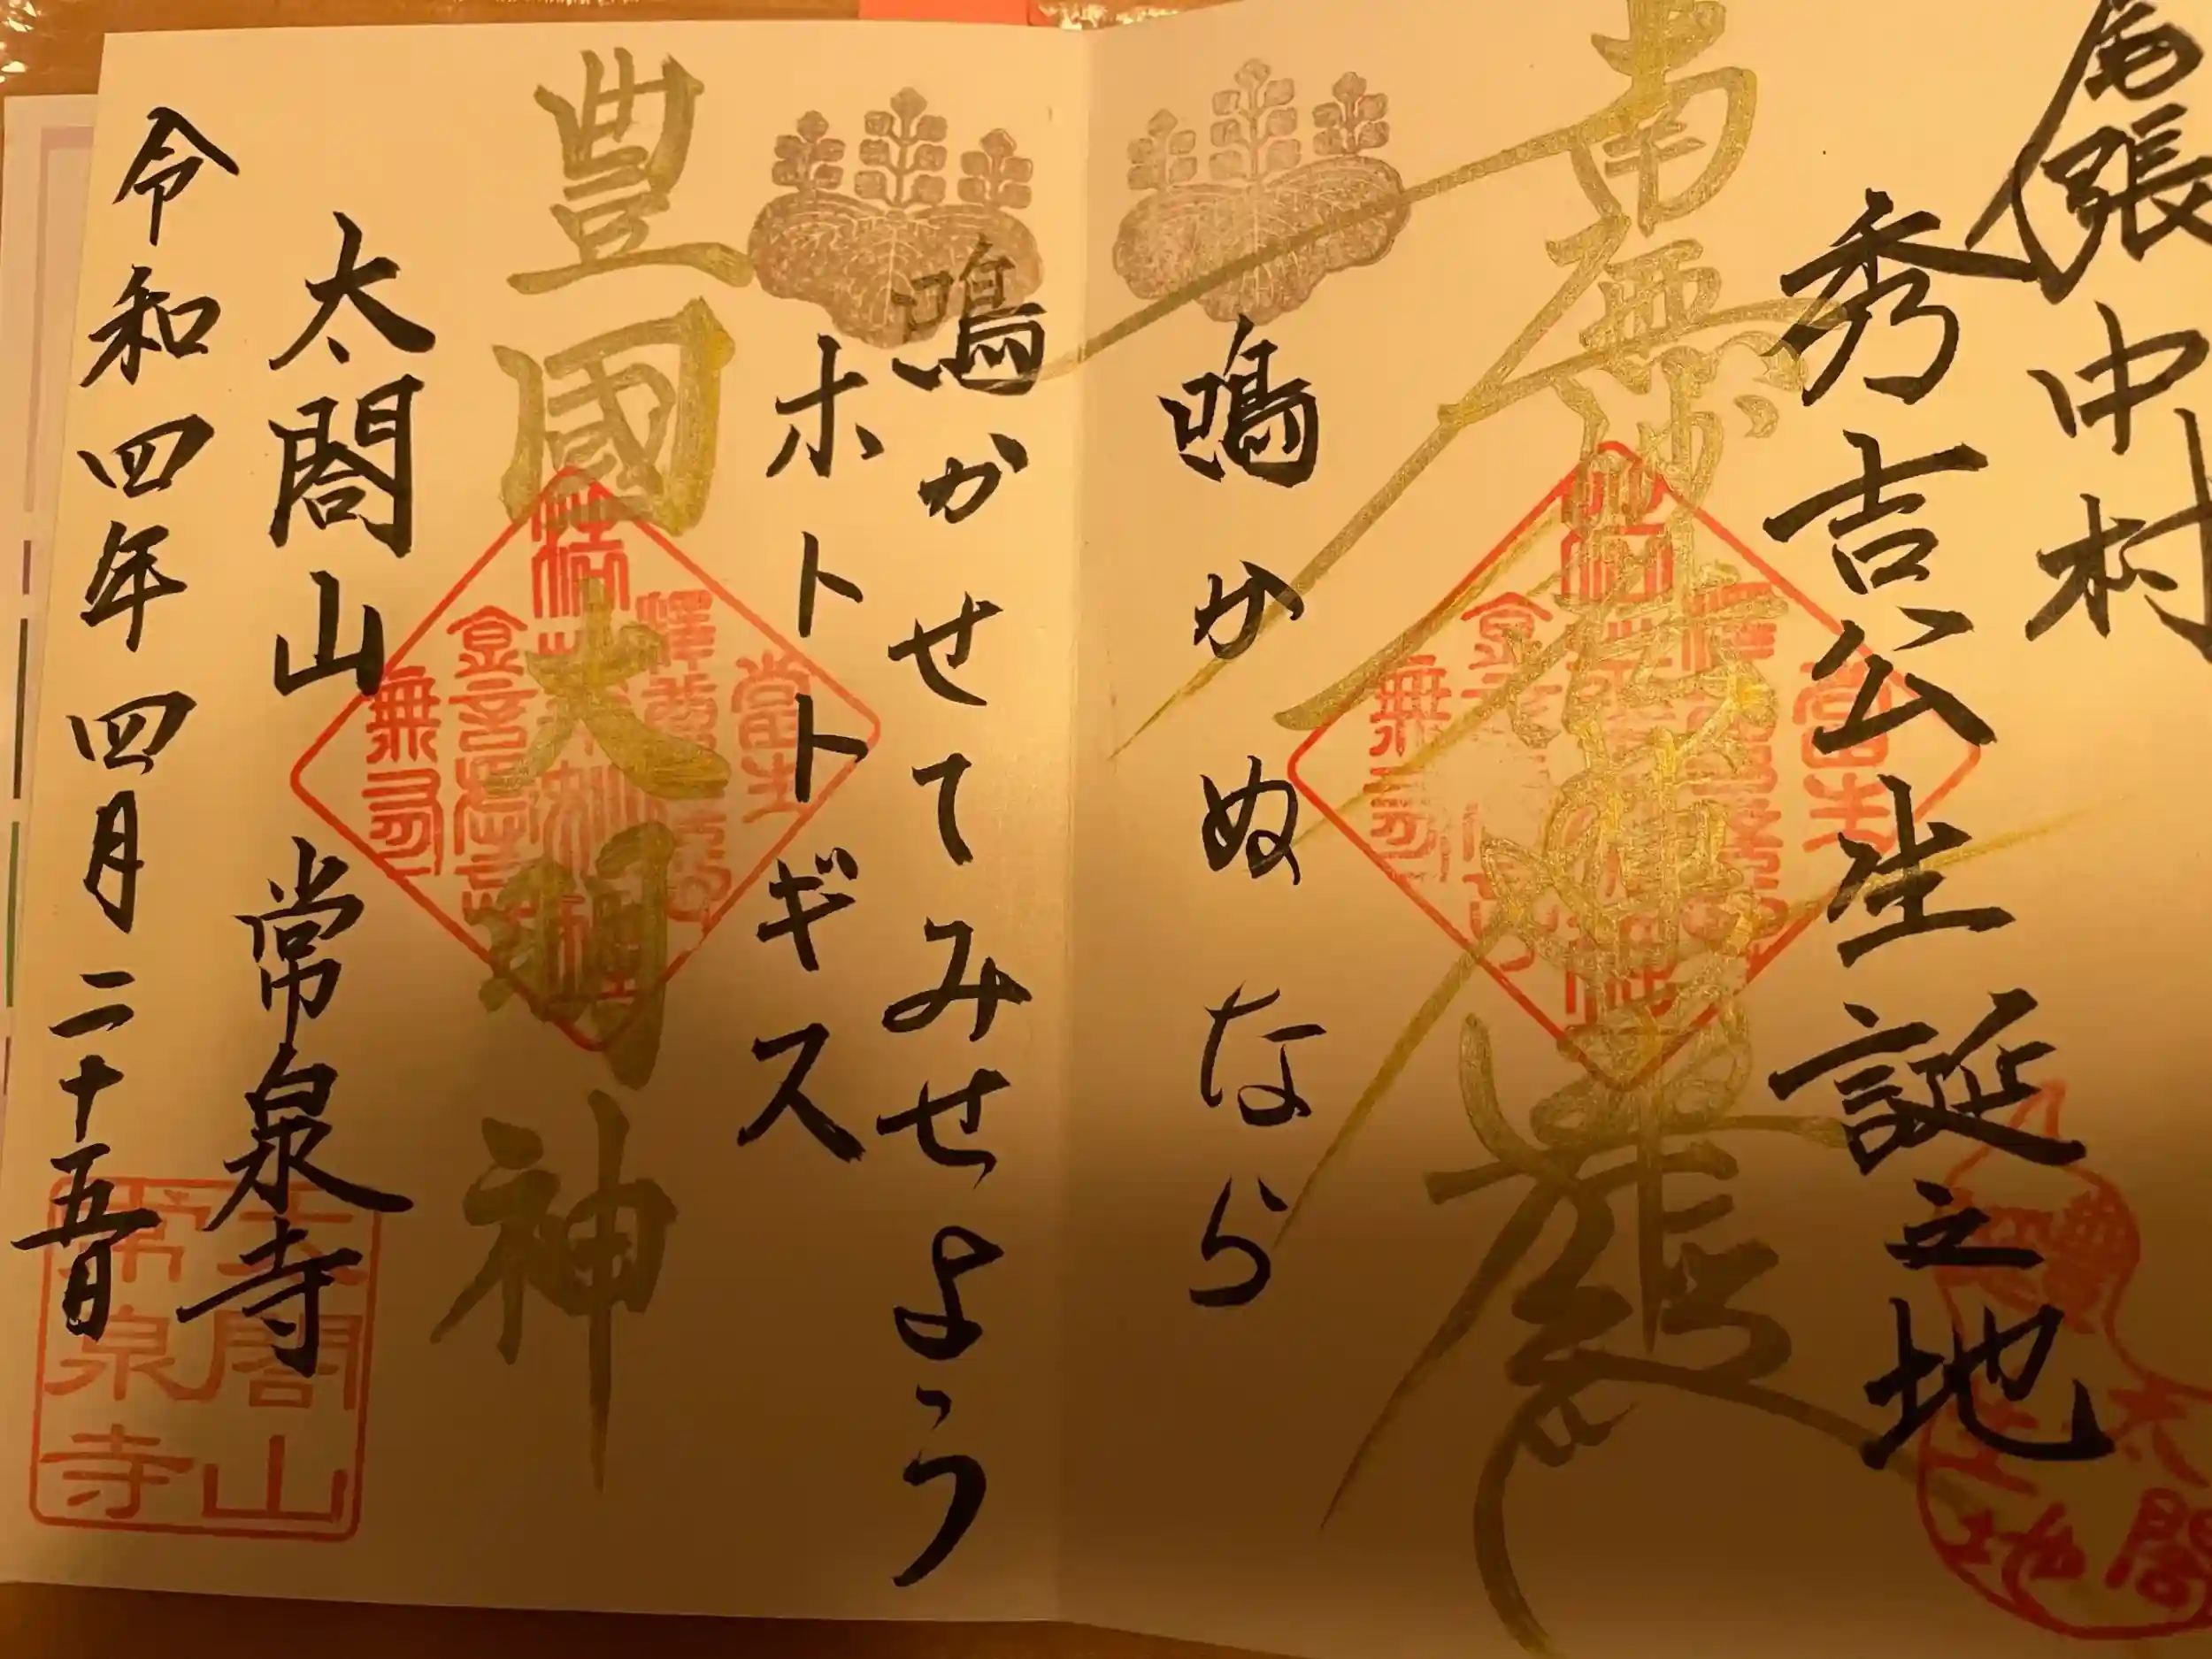 尾張中村
秀吉公生誕之地
南無妙法蓮華経
鳴かぬなら
鳴かせてみせよう
ホトトギス
豊國大明神
太閤山 常泉寺
令和四年四月二十五日
太閤山
常泉寺